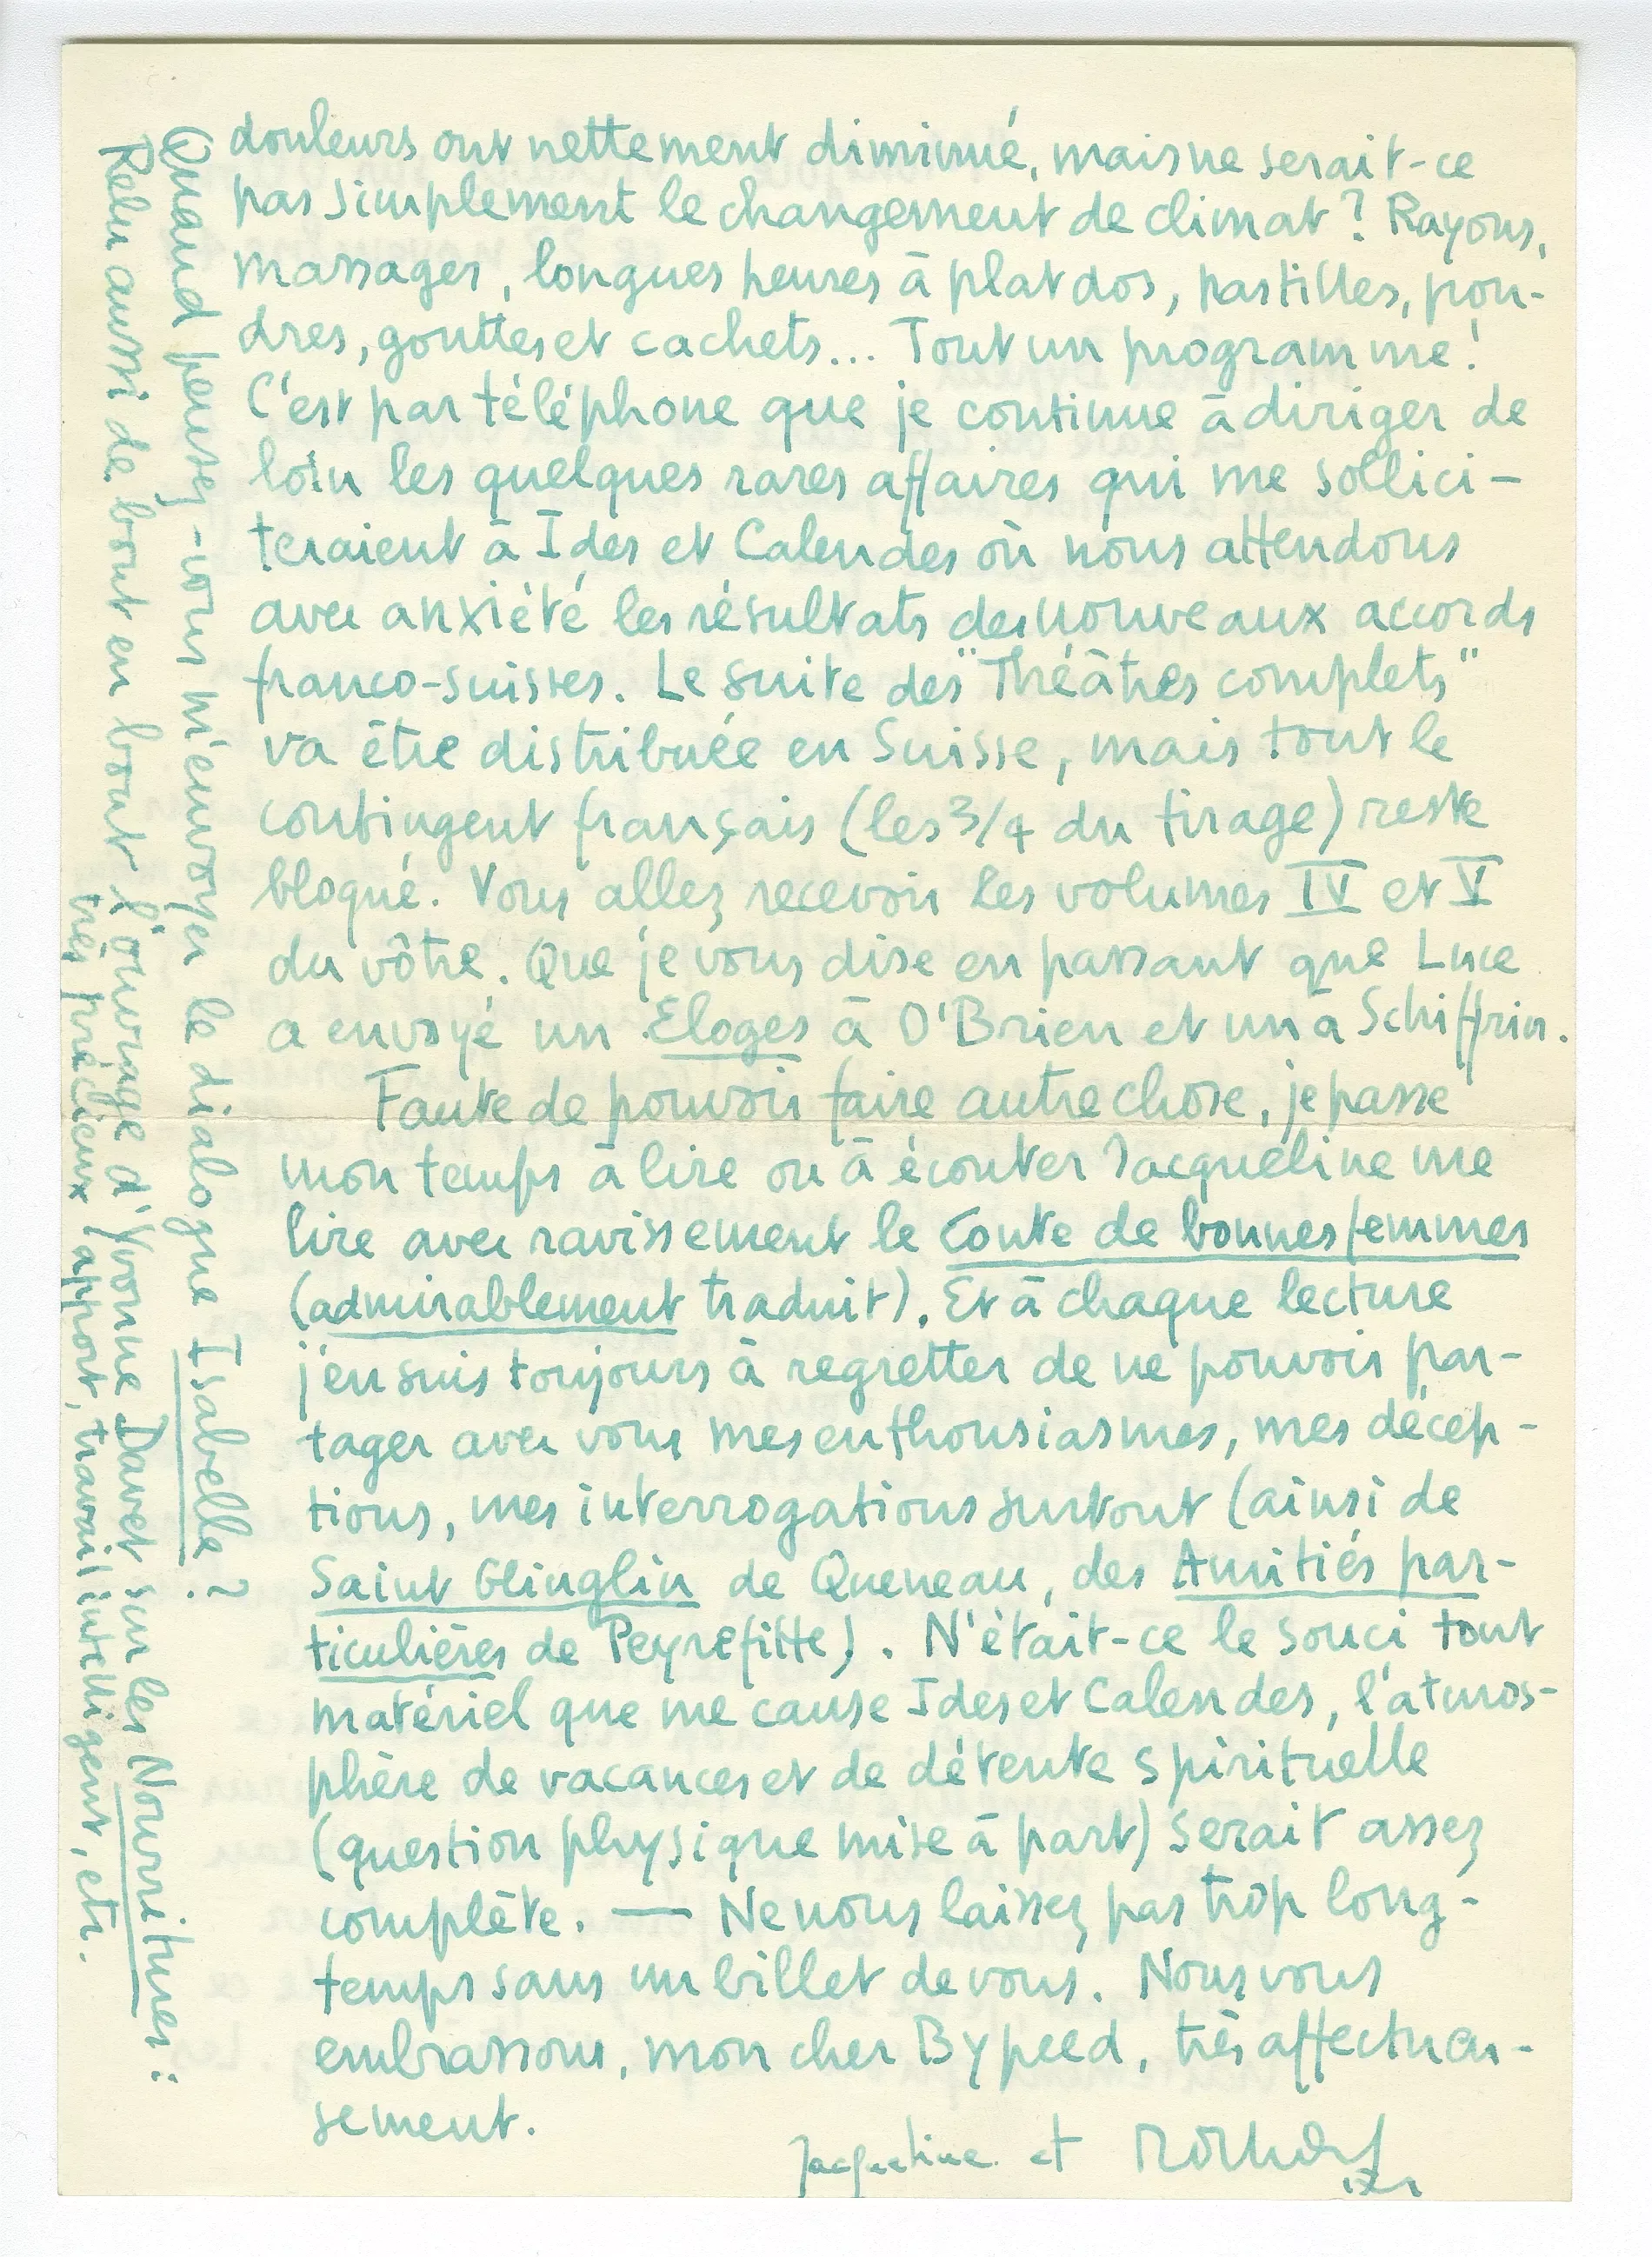 douleurs ont nettement diminué, mais ne serait-ce
pas simplement le changement de climat ? Rayons,
massages, longues heures à plat dos, pastilles, pou-
dres, gouttes et cachets... Tout un programme !
C'est par téléphone que je continue à diriger de
loin les quelques rares affaires qui me sollici-
teraient à Ides et Calendes où nous attendons
avec anxiété les résultats des nouveaux accords
franco-suisses. Le suite des "Théâtres complets"
va être distribuée en Suisse, mais tout le
contingent français (les 3/4 du tirage) reste
bloqué. Vous allez recevoir les volumes IV et V
du vôtre. Que je vous dise en passant que Luce
a envoyé un Eloges à O'Brien et un à Schiffrin.
Faute de pouvoir faire autre chose, je passe
mon temps à lire ou à écouter Jacqueline me
lire avec ravissement le Conte de bonnes femmes
(admirablement traduit). Et à chaque lecture
j'en suis toujours à regretter de ne pouvoir par-
tager avec vous mes enthousiasmes, mes décep-
tions, mes interrogations surtout (ainsi de
Saint Glinglin de Queneau, des Amitiés par-
ticulières de Peyrefitte). N'était-ce le souci tout
matériel que me cause Ides et Calendes, l'atmos-
phère de vacances et de détente spirituelle
(question physique mise à part) serait assez
complète. — Ne nous laissez pas trop long-
temps sans un billet de vous. Nous vous
embrassons, mon cher Bypeed, très affectueu-
sement.
Jacqueline et Richard
Quand pensez-vous m'envoyer le dialogue Isabelle ?
Relu aussi de bout en bout l'ouvrage d'Yvonne Davet sur les Nourritures :
très précieux apport, travail intelligent, etc.